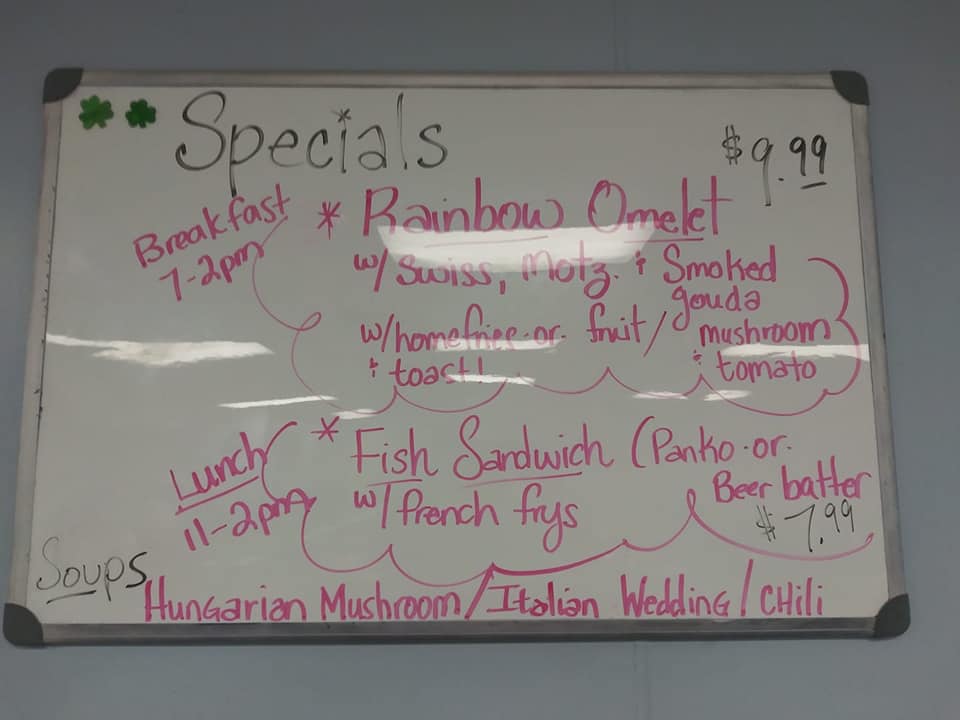 Specials $9.99
Breakfast
7-2pm
* Rainbow Omelet
w/ Swiss, Motz. & Smoked
gouda
w/homefries or fruit / mushroom
& toast! & tomato
Lunch
11-2pm
* Fish Sandwich (Panko or
Beer batter
w/ french frys
$7.99
Soups
Hungarian Mushroom/Italian Wedding/CHili